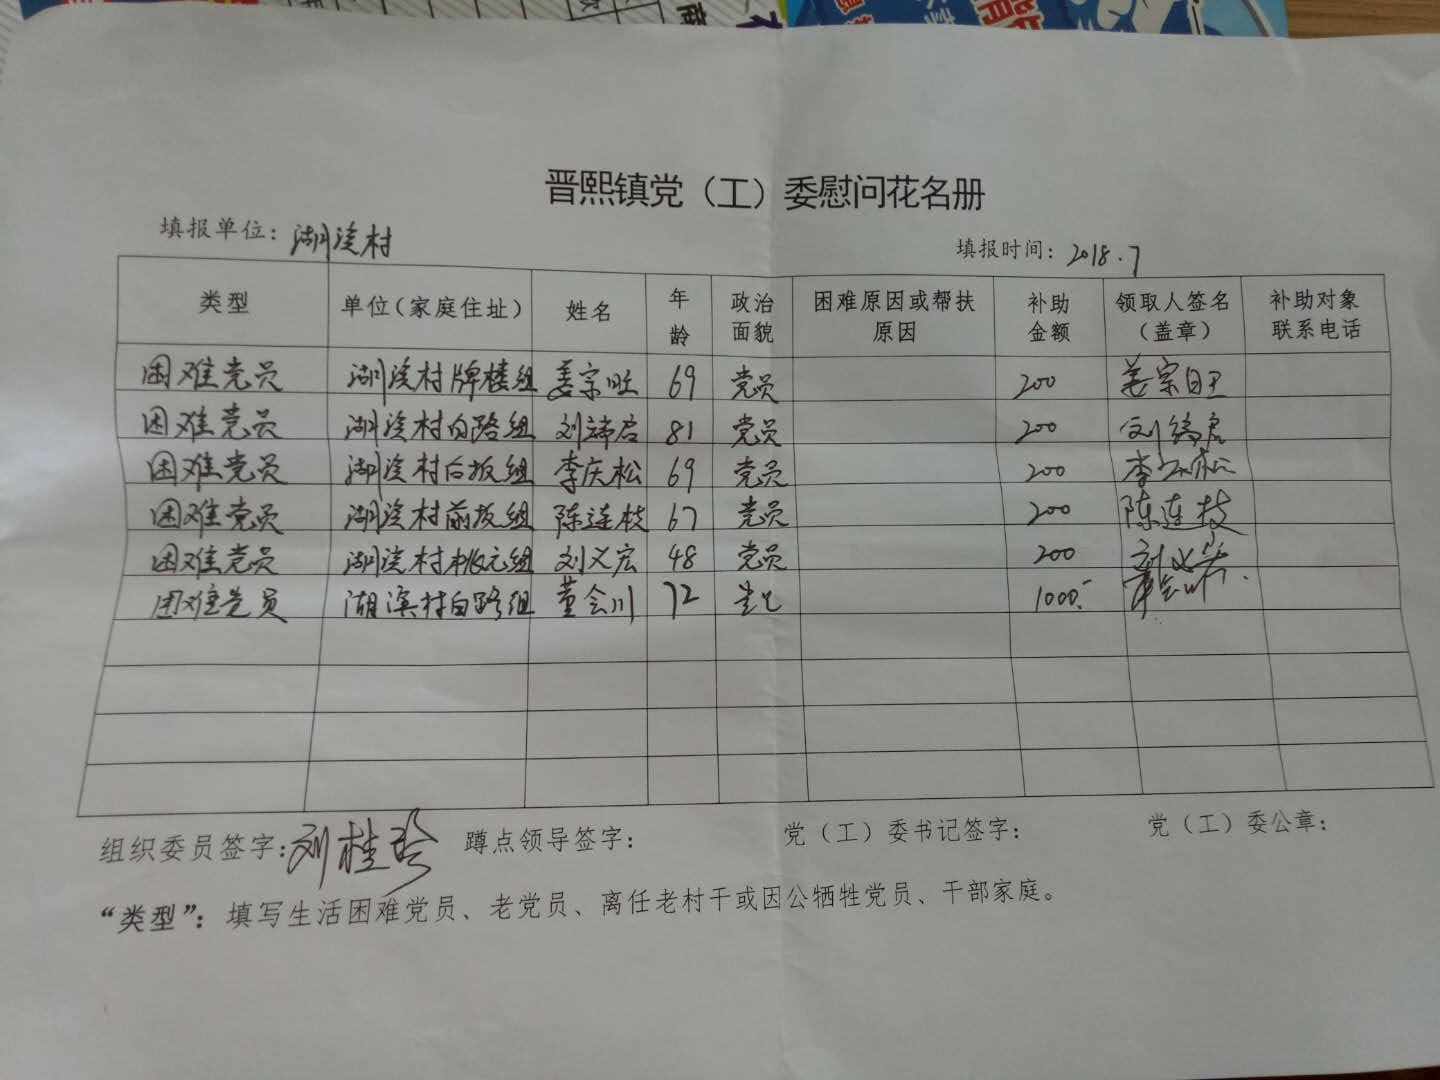 晋熙镇党（工）委慰问花名册
填报单位：湖滨村 填报时间：2018.7
类型 单位（家庭住址） 姓名 年龄 政治面貌 困难原因或帮扶原因 补助金额 领取人签名（盖章） 补助对象联系电话
困难党员 湖滨村牌楼组 姜宗旺 69 党员 200 姜宗旺
困难党员 湖滨村白路组 刘 启 81 党员 200 刘 启
困难党员 湖滨村后坂组 李庆松 69 党员 200 李庆松
困难党员 湖滨村前坂组 陈连枝 67 党员 200 陈连枝
困难党员 湖滨村桃元组 刘义宏 48 党员 200 刘义宏
困难党员 湖滨村白路组 董会川 72 党员 1000 董会川
组织委员签字：刘桂玲 蹲点领导签字： 党（工）委书记签字： 党（工）委公章：
“类型”：填写生活困难党员、老党员、离任老村干或因公牺牲党员、干部家庭。